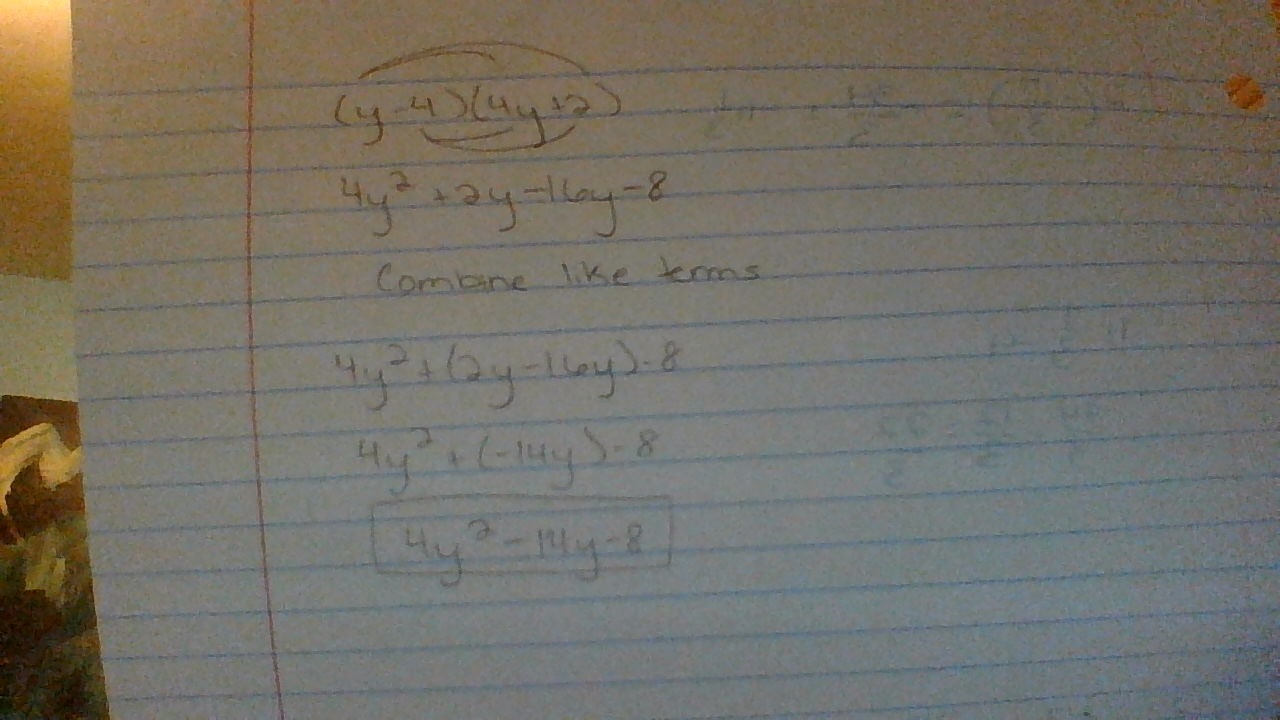 (y-4)(4y+2)
4y² +2y-16y-8
Combine like terms
4y²+(2y-16y)-8
4y²+(-14y)-8
4y²-14y-8